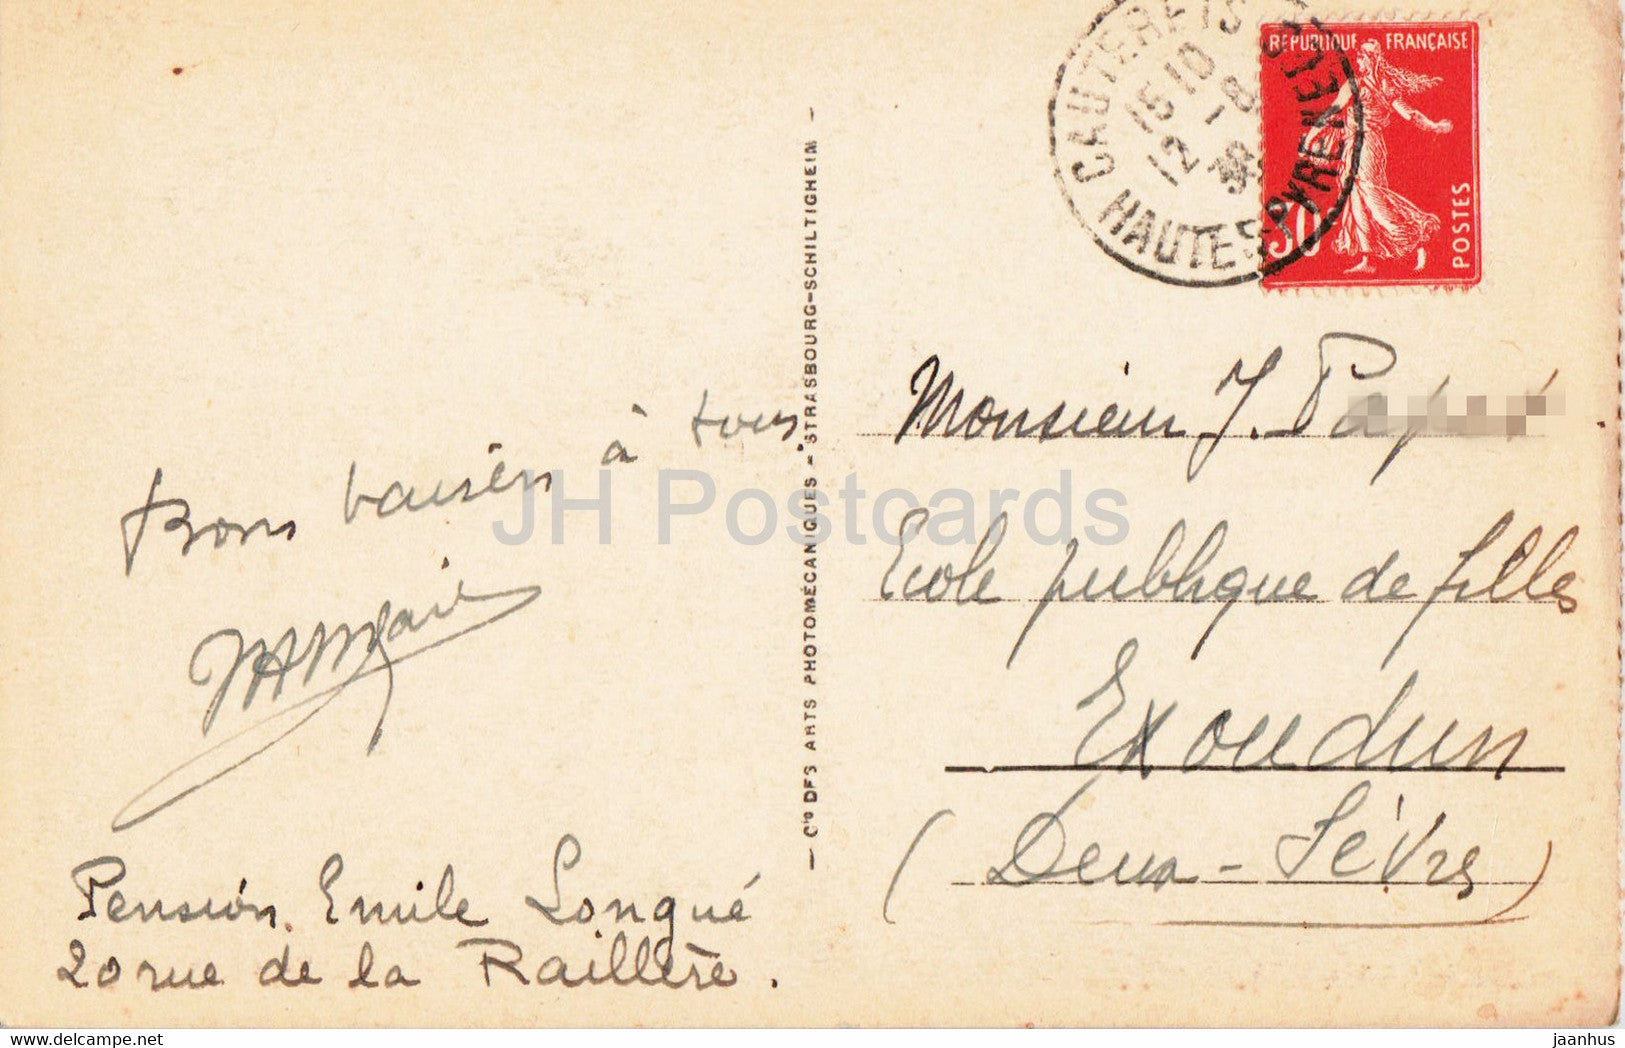 CAUTERETS
15 10
12 - 8
38
HAUTES-PYRENEES
REPUBLIQUE FRANÇAISE
30
POSTES
Bons baisers à tous
Pension Emile Longué
20 rue de la Raillère.
- Cie DES ARTS PHOTOMECANIQUES - STRASBOURG-SCHILTIGHEIM -
Monsieur J.
Ecole publique de filles
Exoudun
(Deux-Sèvres)
JH Postcards
jaanhus